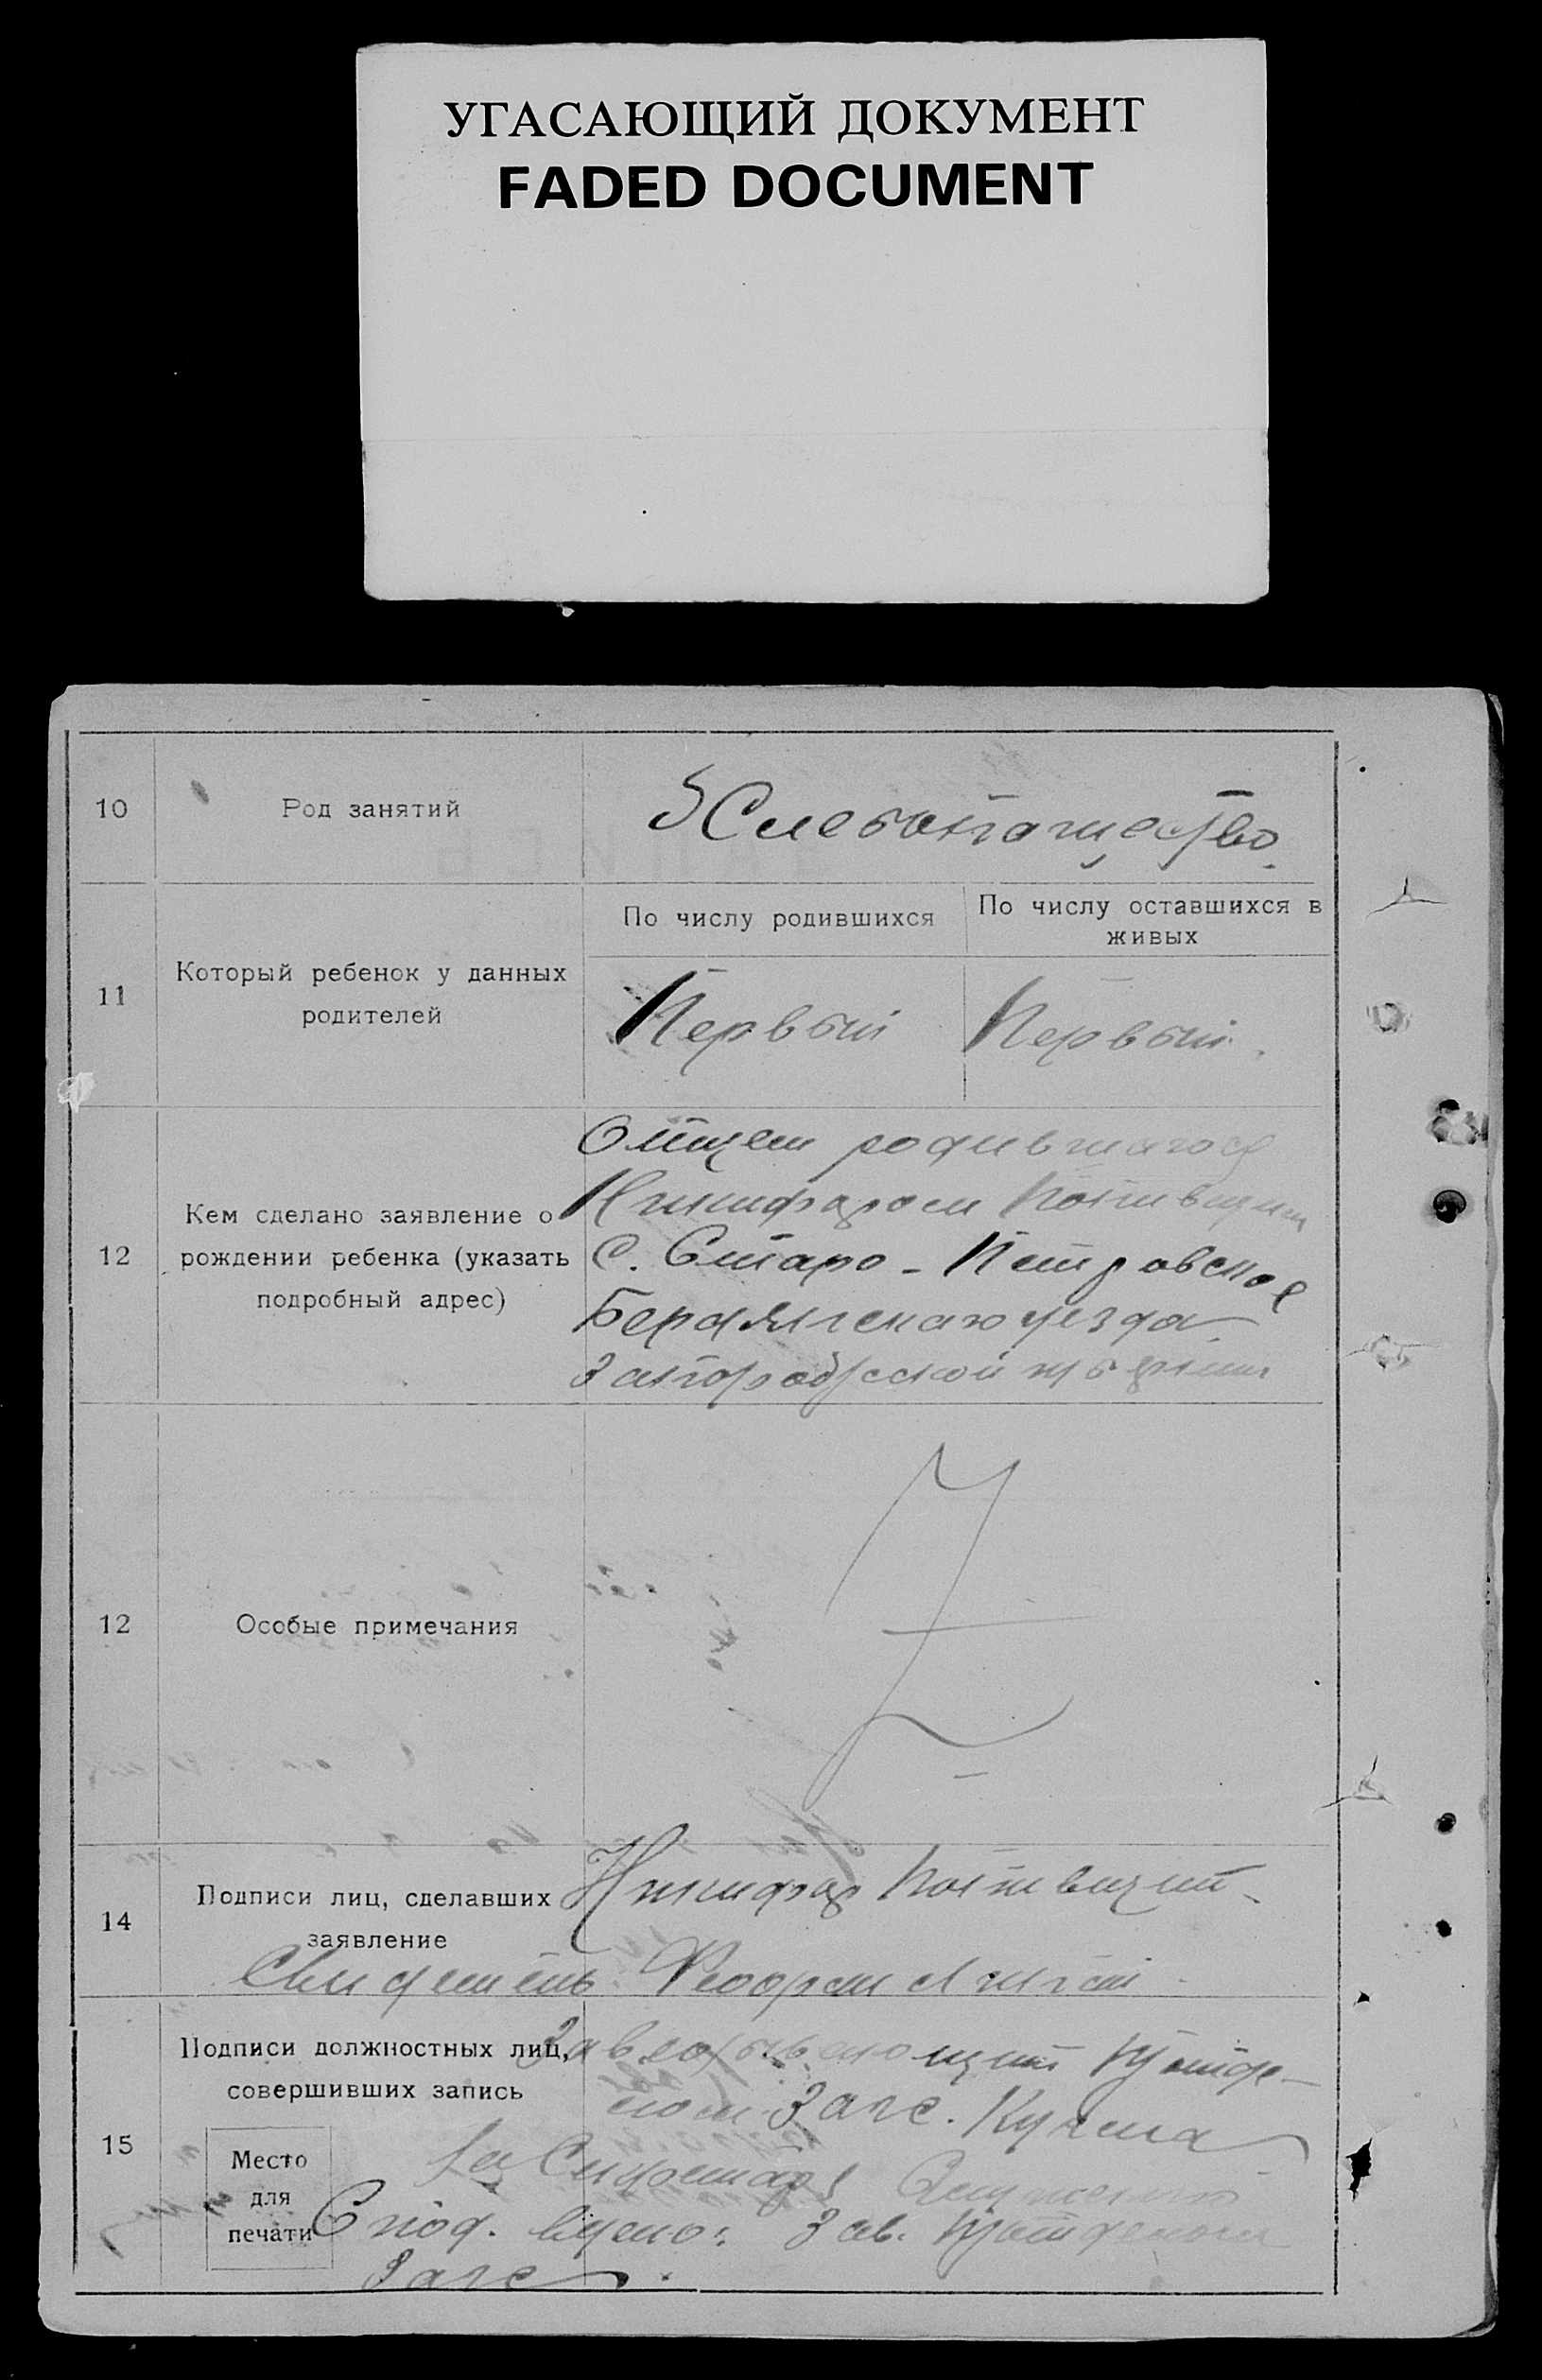 УГАСАЮЩИЙ ДОКУМЕНТ
FADED DOCUMENT
10
Род занятий
Хлебопашество
11
Который ребенок у данных
родителей
По числу родившихся
По числу оставшихся в
живых
Первый
Первый.
12
Кем сделано заявление о
рождении ребенка (указать
подробный адрес)
Отцем родившагося
Никифаром
С. Старо-Петровское
Бердянскаго уезда
Запорожской губернии
12
Особые примечания
14
Подписи лиц, сделавших
заявление
Никифар
Свидетель
15
Подписи должностных лиц,
совершивших запись
Заведывающий
Загс.
Место
для
печати
С под. верно: Зав.
Загс